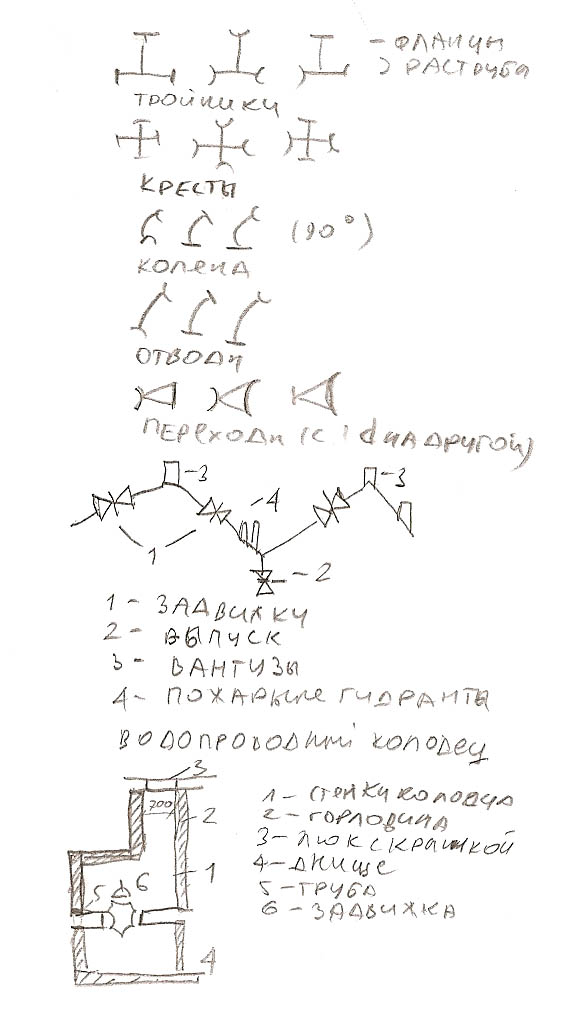 - ФЛАНЦЫ
) РАСТРУБА
ТРОЙНИКИ
КРЕСТЫ
(90°)
КОЛЕНА
ОТВОДЫ
ПЕРЕХОДЫ (С 1 d НА ДРУГОЙ)
3
3
4
1
2
1 - ЗАДВИЖКИ
2 - ВЫПУСК
3 - ВАНТУЗЫ
4 - ПОЖАРНЫЕ ГИДРАНТЫ
ВОДОПРОВОДНЫЙ КОЛОДЕЦ
3
700
2
1
5
6
4
1 - СТЕНКИ КОЛОДЦА
2 - ГОРЛОВИНА
3 - ЛЮК С КРЫШКОЙ
4 - ДНИЩЕ
5 - ТРУБА
6 - ЗАДВИЖКА